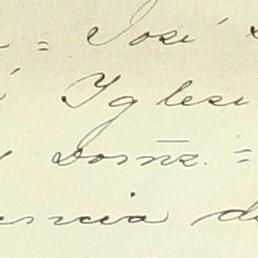 = José
Iglesi
Domñz. =
encia de